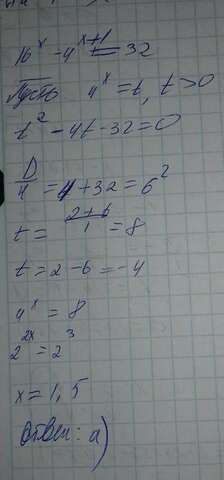 16^x - 4^(x+1) = 32
Пусть 4^x = t, t > 0
t² - 4t - 32 = 0
D/4 = 4 + 32 = 6²
t = (2+6)/1 = 8
t = 2 - 6 = -4
4^x = 8
2^(2x) = 2^3
x = 1,5
Ответ: а)